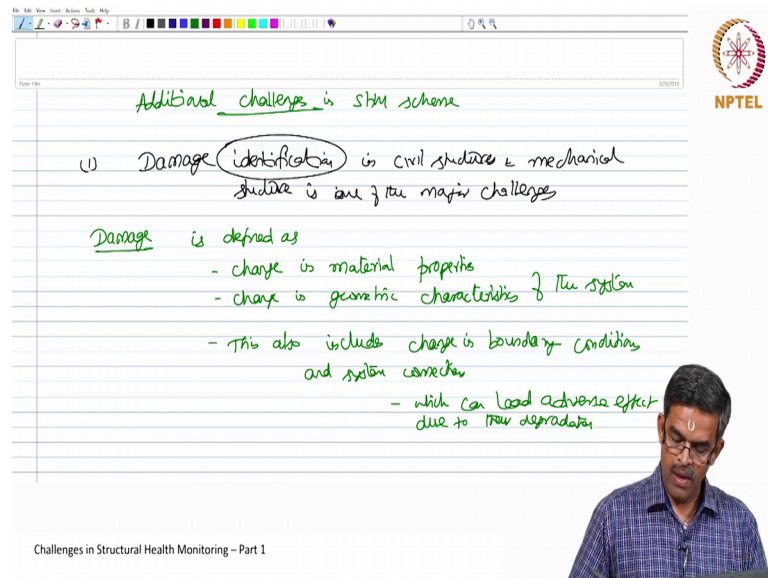 File Edit View Insert Actions Tools Help
B I
Note Title
NPTEL
Additional challenges in SHM scheme
(1) Damage identification in civil structure & mechanical
structure is one of the major challenges
Damage is defined as
- change in material properties
- change in geometric characteristics } of the system
- This also include change in boundary conditions
and system connection
- which can lead adverse effect
due to their degradation
Challenges in Structural Health Monitoring – Part 1